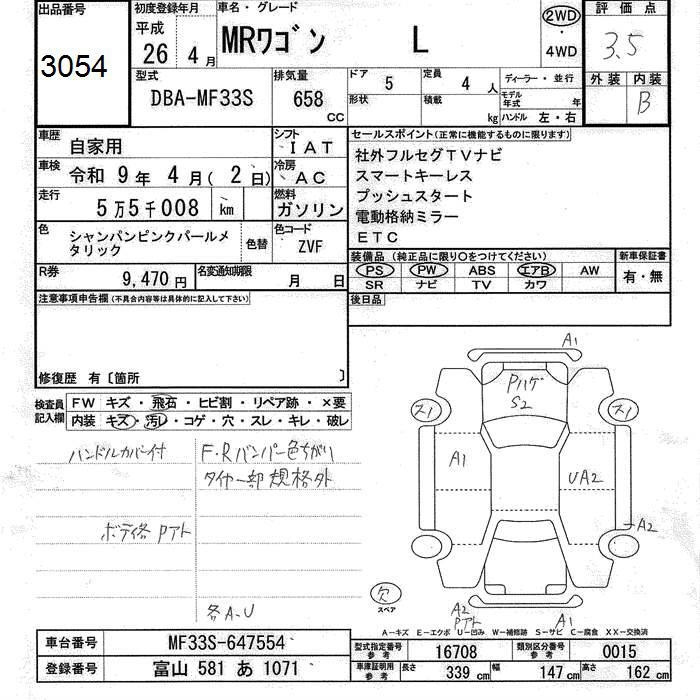 出品番号
3054
初度登録年月
平成
26 4月
車名・グレード
MRワゴン L
2WD
・
4WD
評価点
3.5
外装 内装
B
型式
DBA-MF33S
排気量
658
CC
ドア 5
形状
定員 4 人
積載 kg
ディーラー・並行
モデル年式 年
ハンドル 左・右
車歴 自家用
シフト IAT
車検 令和 9年 4月( 2日)
冷房 AC
走行 5万5千008 km
燃料 ガソリン
色 シャンパンピンクパールメタリック
色替
色コード ZVF
R券 9,470円
名変通知期限 月 日
セールスポイント(正常に機能するものに限ります)
社外フルセグTVナビ
スマートキーレス
プッシュスタート
電動格納ミラー
ETC
装備品 (純正品に限り〇をつけてください)
PS PW ABS エアB AW
SR ナビ TV カワ
新車保証書
有・無
後日品
注意事項申告欄(不具合内容等は具体的に記入して下さい)
修復歴 有〔箇所 〕
検査員記入欄
FW キズ・飛石・ヒビ割・リペア跡・×要
内装 キズ・汚レ・コゲ・穴・スレ・キレ・破レ
ハンドルカバー付
F・Rバンパー色ちがい
タイヤ一部規格外
ボディ各Pアト
各A、U
A1
Pハゲ
S2
ス1
ス1
A1
UA2
A2
欠
スペア
A2
Pアト
A1
A―キズ E―エクボ U―凹み W―補修跡 S―サビ C―腐食 XX―交換済
車台番号 MF33S-647554
登録番号 富山 581 あ 1071
型式指定番号 参考 16708
類別区分番号 参考 0015
車庫証明用 参考 長さ 339cm 幅 147cm 高さ 162cm